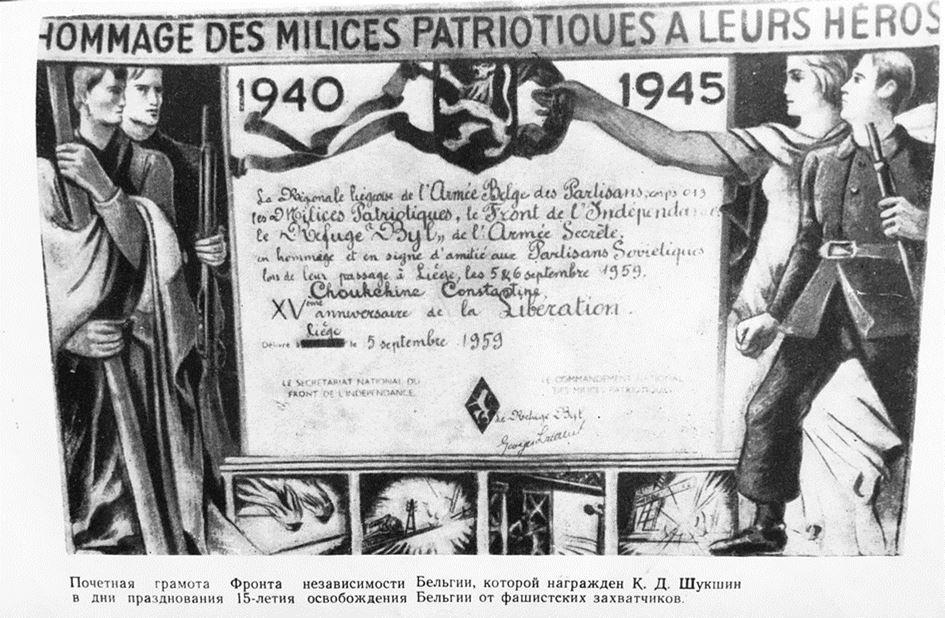 HOMMAGE DES MILICES PATRIOTIQUES A LEURS HÉROS
1940 1945
La Régionale liégeoise de l'Armée Belge des Partisans, corps 013
les Milices Patriotiques, le Front de l'Indépendance
le "Refuge Byl" de l'Armée Secrète,
en hommage et en signe d'amitié aux Partisans Soviétiques
lors de leur passage à Liége, les 5 & 6 septembre 1959.
Choukchine Constantine
XVème anniversaire de la Libération.
Liége
Délivré à le 5 septembre 1959
LE SECRETARIAT NATIONAL DU
FRONT DE L'INDEPENDANCE.
LE COMMANDEMENT NATIONAL
DES MILICES PATRIOTIQUES
Le Refuge Byl
Georges
Почетная грамота Фронта независимости Бельгии, которой награжден К. Д. Шукшин
в дни празднования 15-летия освобождения Бельгии от фашистских захватчиков.